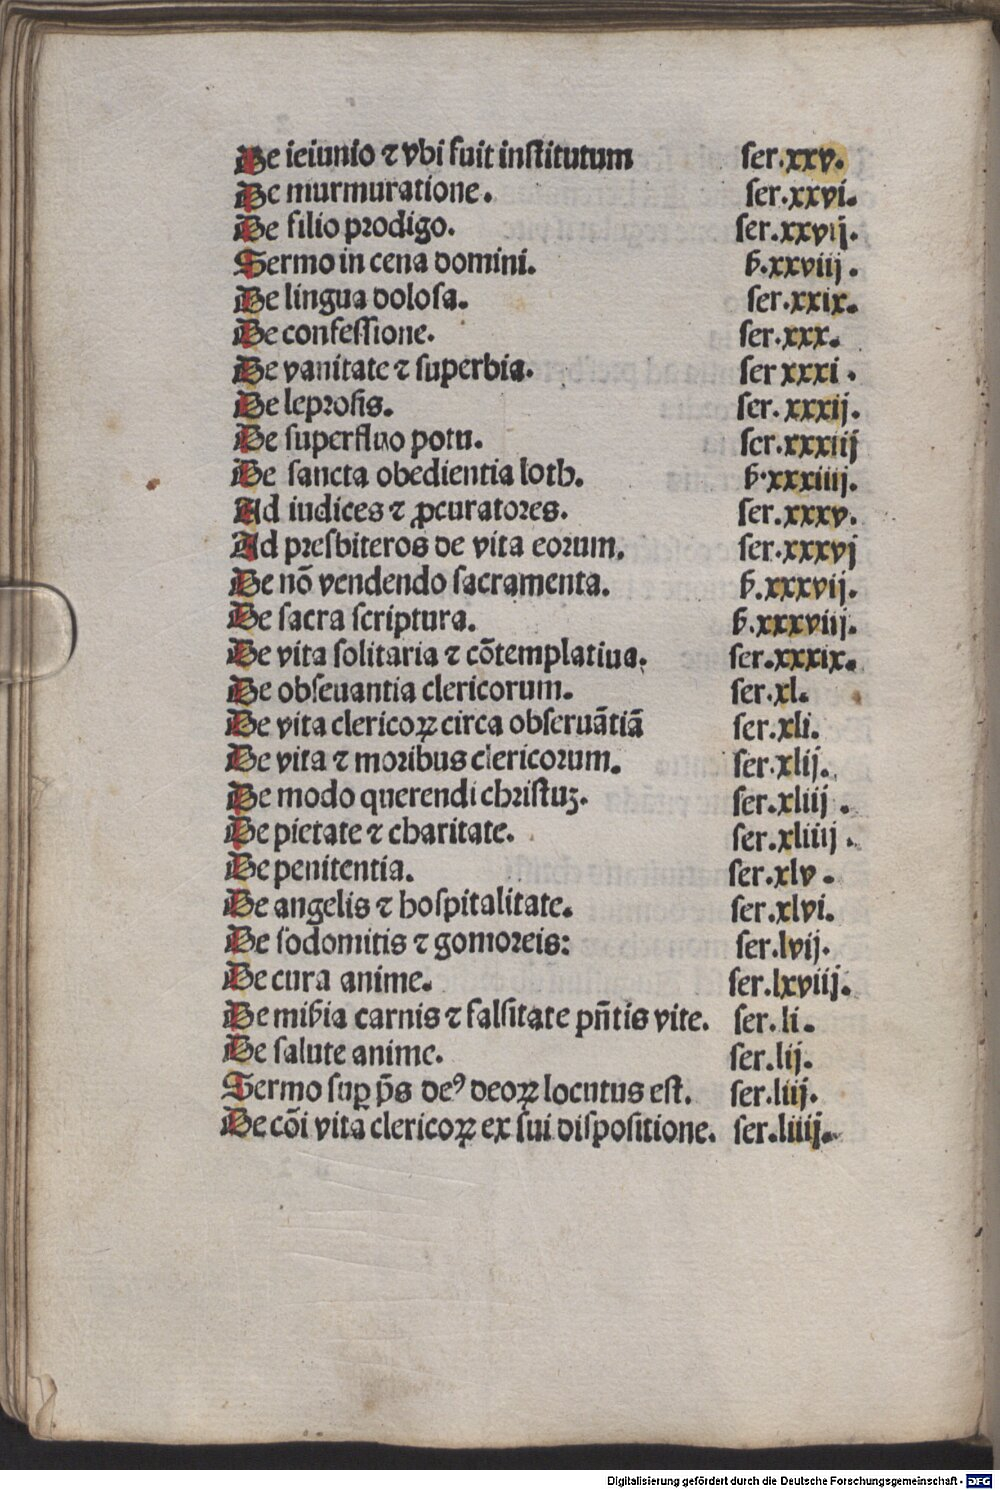 De ieiunio ⁊ vbi fuit inſtitutum ſer.xxv.
De murmuratione. ſer.xxvi.
De filio prodigo. ſer.xxvij.
Sermo in cena domini. ẜ.xxviij.
De lingua doloſa. ſer.xxix.
De confeſſione. ſer.xxx.
De vanitate ⁊ ſuperbia. ſer xxxi.
De leproſis. ſer.xxxij.
De ſuperfluo potu. ſer.xxxiij
De ſancta obedientia loth. ẜ.xxxiiij.
Ad iudices ⁊ ꝓcuratores. ſer.xxxv.
Ad preſbiteros de vita eorum. ſer.xxxvj
De nō vendendo ſacramenta. ẜ.xxxvij.
De ſacra ſcriptura. ẜ.xxxviij.
De vita ſolitaria ⁊ cōtemplatiua. ſer.xxxix.
De obſeuantia clericorum. ſer.xl.
De vita clericoꝝ circa obſeruātiā ſer.xli.
De vita ⁊ moribus clericorum. ſer.xlij.
De modo querendi chriſtuꝫ. ſer.xliij.
De pietate ⁊ charitate. ſer.xliiij.
De penitentia. ſer.xlv.
De angelis ⁊ hoſpitalitate. ſer.xlvi.
De ſodomitis ⁊ gomoreis: ſer.lvij.
De cura anime. ſer.lxviij.
De miẜia carnis ⁊ falſitate pñtis vite. ſer.li.
De ſalute anime. ſer.lij.
Sermo ſuꝑ p̄s deꝰ deoꝝ locutus eſt. ſer.liij.
De cōi vita clericoꝝ ex ſui diſpoſitione. ſer.liiij.
Digitalisierung gefördert durch die Deutsche Forschungsgemeinschaft - DFG